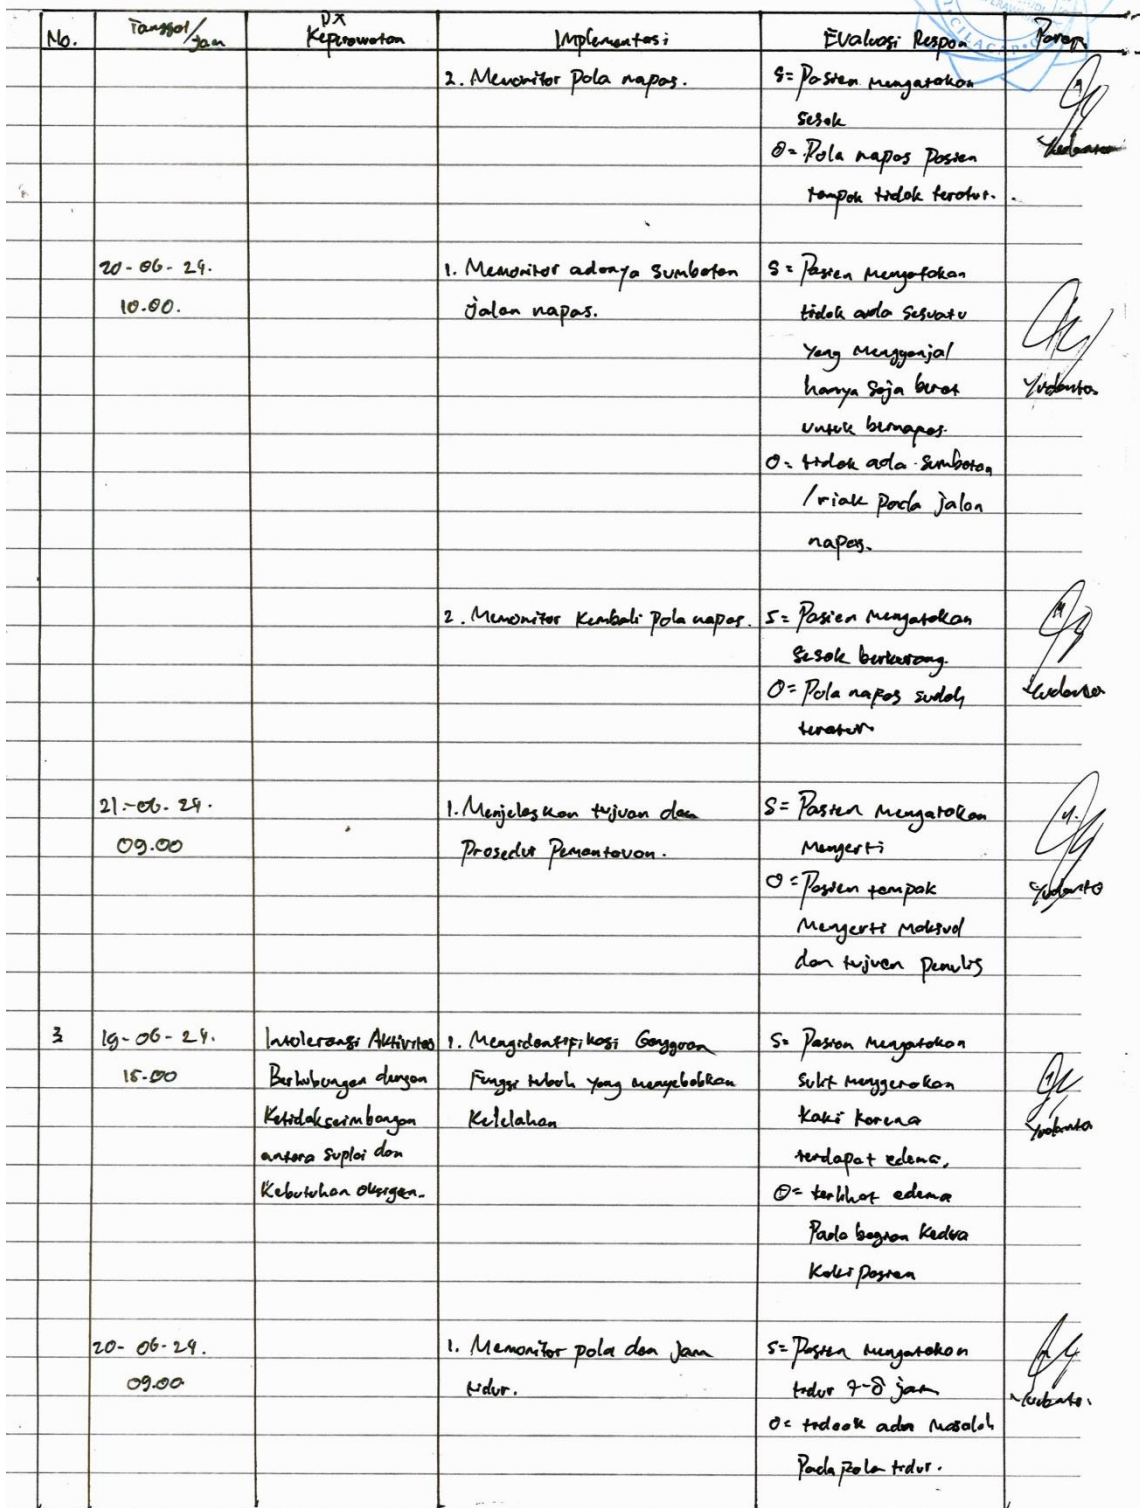 No.
Tanggal/
Jam
DX
Keperawatan
Implementasi
Evaluasi Respon
Paraf
CILACAP
2. Memonitor Pola napas.
S= Pasien mengatakan
sesak
O= Pola napas Pasien
tampak tidak teratur.
Yudanto
20-06-24.
10.00.
1. Memonitor adanya sumbatan
jalan napas.
S= Pasien mengatakan
tidak ada sesuatu
yang mengganjal
hanya saja berat
untuk bernapas.
O= tidak ada sumbatan
/riak pada jalan
napas.
Yudanto
2. Memonitor Kembali Pola napas.
S= Pasien mengatakan
sesak berkurang.
O= Pola napas sudah
teratur
Yudanto
21-06-24.
09.00
1. Menjelaskan tujuan dan
Prosedur Pemantauan.
S= Pasien mengatakan
Mengerti
O= Pasien tampak
Mengerti Maksud
dan tujuan penulis
Yudanto
3
19-06-24.
15.00
Intoleransi Aktivitas
Berhubungan dengan
Ketidakseimbangan
antara Suplai dan
Kebutuhan Oksigen.
1. Mengidentifikasi Gangguan
Fungsi tubuh yang menyebabkan
Kelelahan
S= Pasien mengatakan
sulit menggerakan
kaki karena
terdapat edema.
O= terlihat edema
Pada bagian Kedua
Kaki pasien
Yudanto
20-06-24.
09.00
1. Memonitor pola dan jam
tidur.
S= Pasien mengatakan
tidur 7-8 jam
O= tidaok ada masalah
Pada pola tidur.
Yudanto.